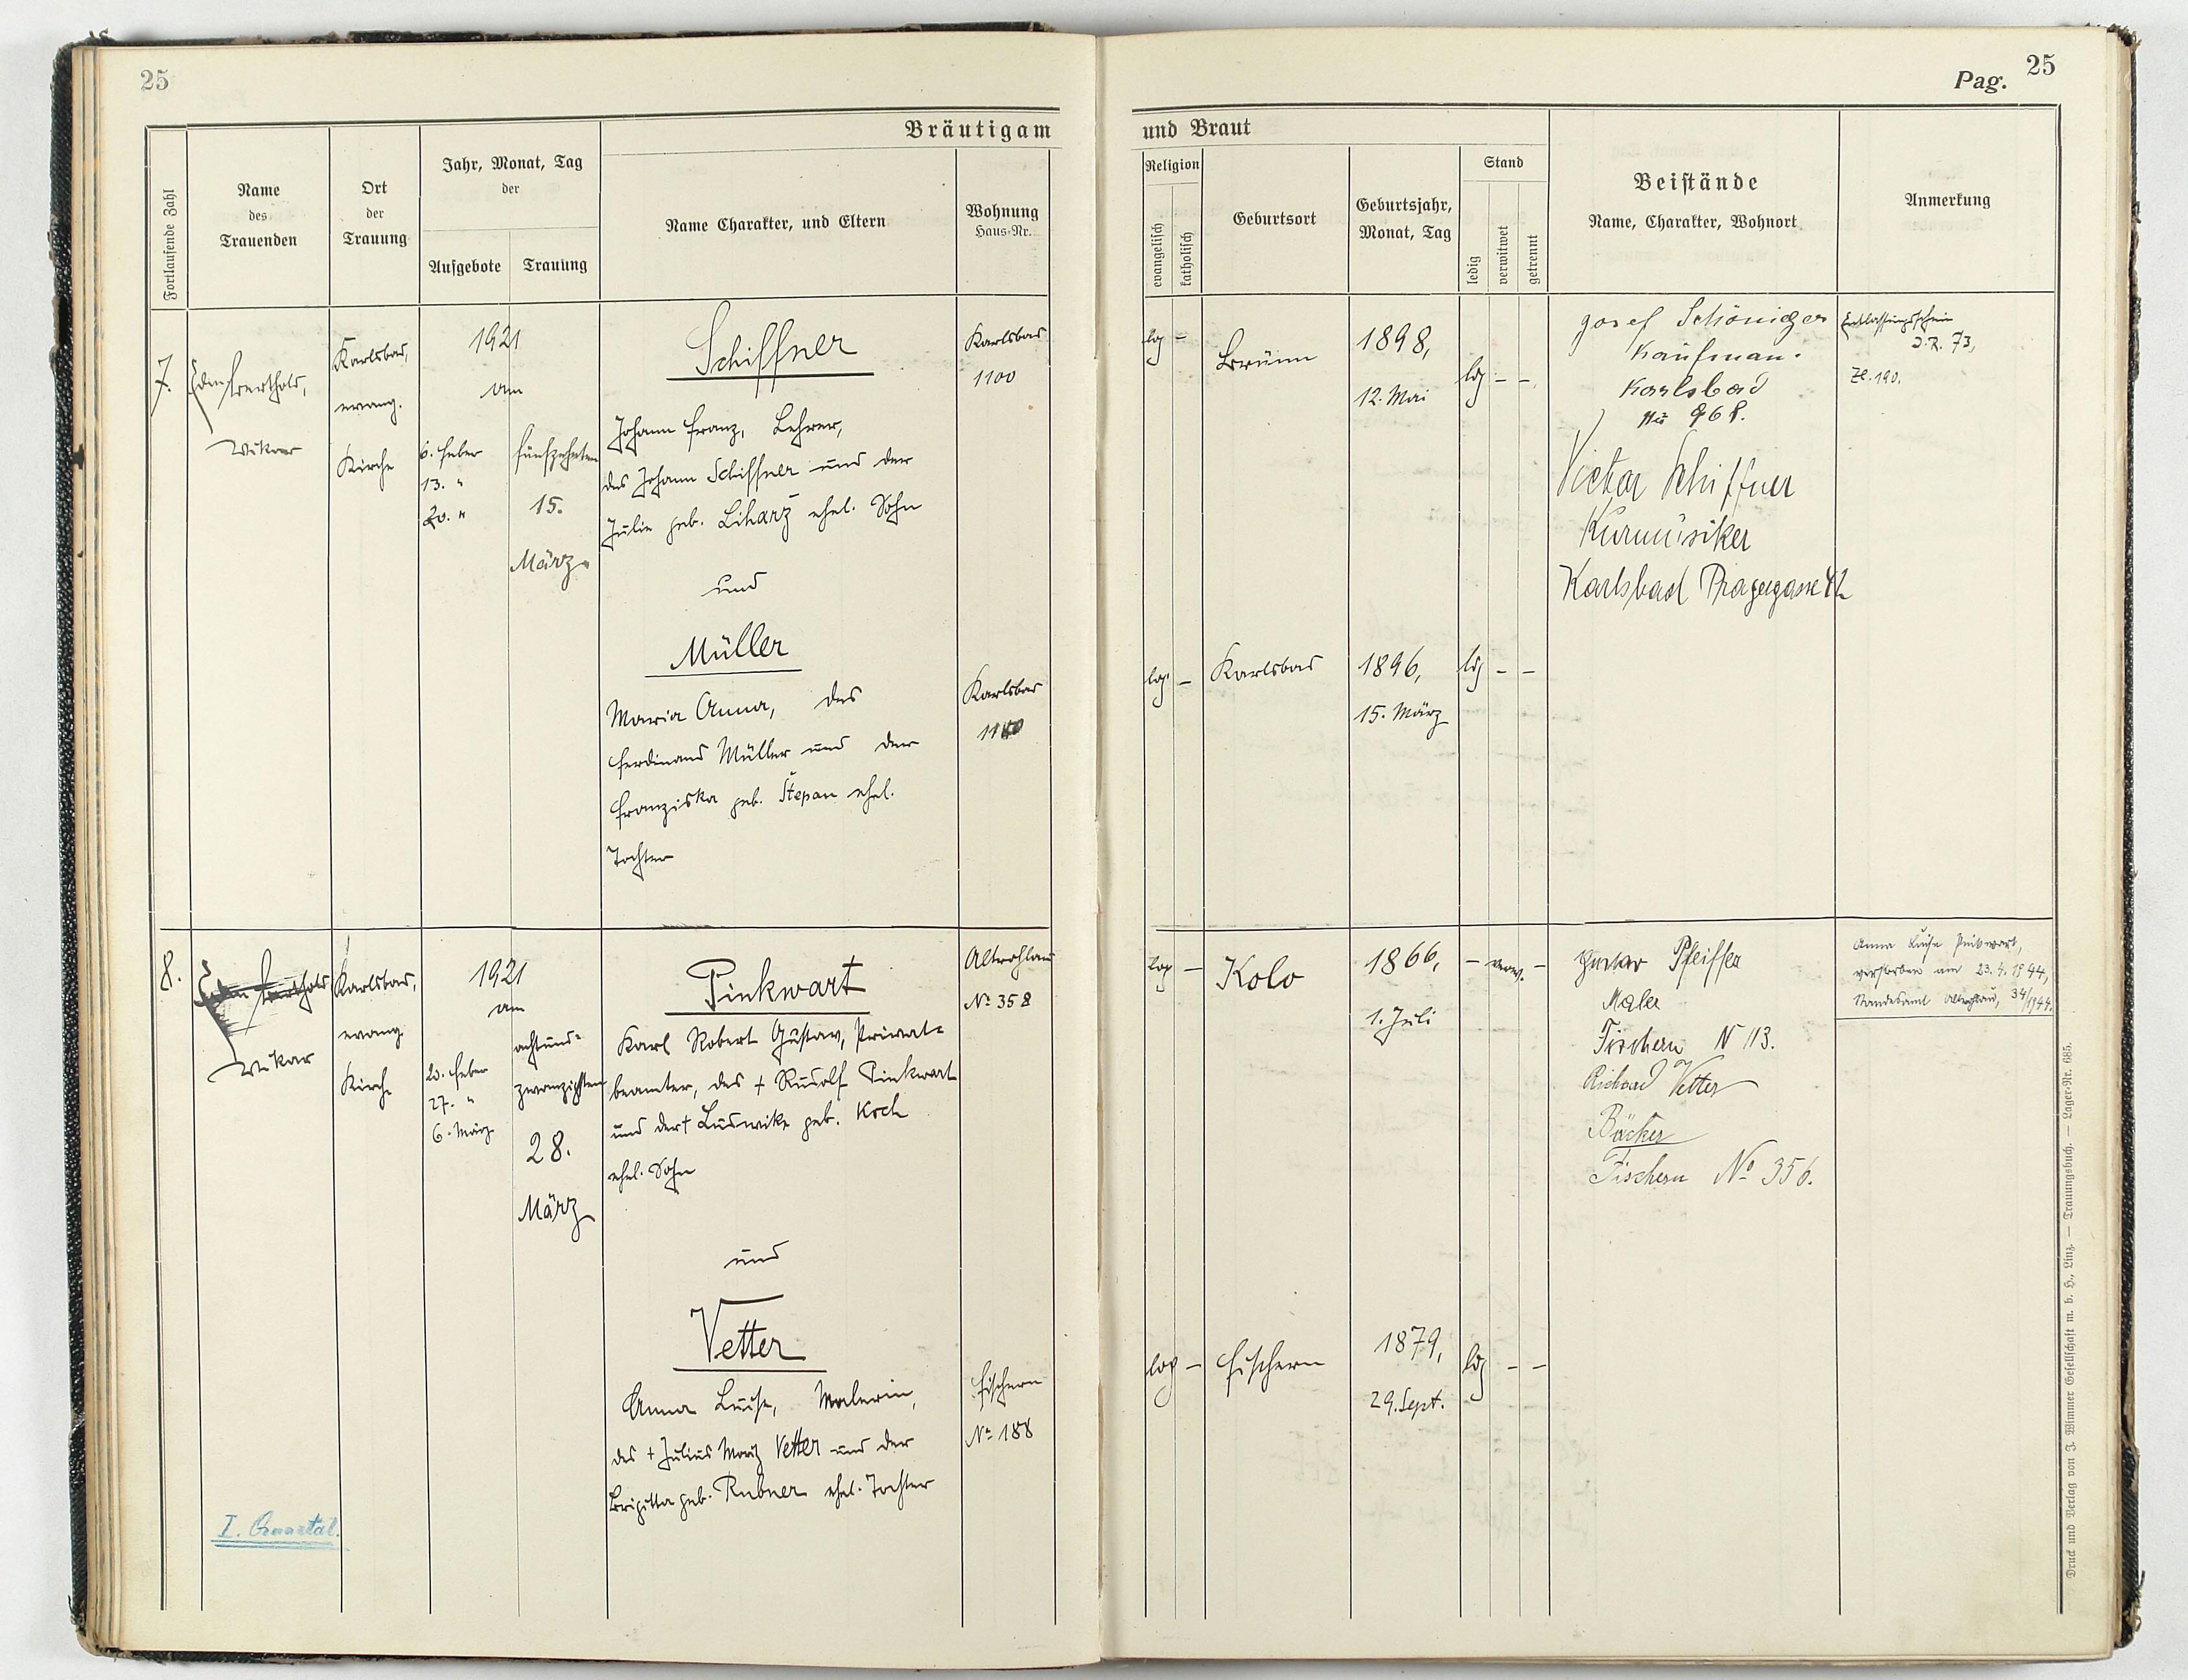 25
Pag. 25
Bräutigam
und Braut
Fortlaufende Zahl
Name
des
Trauenden
Ort
der
Trauung
Jahr, Monat, Tag
der
Aufgebote
Trauung
Name Charakter, und Eltern
Wohnung
Haus-Nr.
Religion
evangelisch
katholisch
Geburtsort
Geburtsjahr,
Monat, Tag
Stand
ledig
verwitwet
getrennt
Beistände
Name, Charakter, Wohnort
Anmerkung
7.
Berthold,
Vikar
Karlsbad,
evang.
Kirche
1921
am
6. Feber
13. "
20. "
fünfzehnten
15.
März
Schiffner
Johann Franz, Lehrer,
des Johann Schiffner und der
Julie geb. Liharž ehel. Sohn
und
Müller
Maria Anna, des
Ferdinand Müller und der
Franziska geb. Štepan ehel.
Tochter
Karlsbad
1100
Karlsbad
Brünn
1898,
12. Mai
ldg - -
Karlsbad
1896,
15. März
ldg - -
Josef Schöniger
Kaufman.
Karlsbad
968.
Victor Schiffner
Kurmusiker
Karlsbad Pragergasse
Entlassungsschein
73,
Zl. 190.
8.
Berthold
Vikar
Karlsbad,
evang.
Kirche
1921
am
20. Feber
27. "
6. März
achtund-
zwanzigsten
28.
März
Pinkwart
Karl Robert Gustav, Privat-
beamter, des + Rudolf Pinkwart
und der + Ludwike geb. Koch
ehel. Sohn
und
Vetter
Anna Luise, Malerin,
des + Julius Moriz Vetter und der
Brigitta geb. Rubner ehel. Tochter
Altrohlau
No 358
Fischern
No 188
Kolo
1866,
1. Juli
- verw. -
Fischern
1879,
29. Sept.
ldg - -
Gustav Pfeiffer
Maler
Fischern N 113.
Richard Vetter
Bäcker
Fischern No 356.
Anna Luise Pinkwart,
verstorben am 23.4.1944,
Standesamt Altrohlau, 34/1944.
I. Quartal.
Druck und Verlag von J. Wimmer Gesellschaft m. b. H., Linz. — Trauungsbuch. — Lager-Nr. 685.